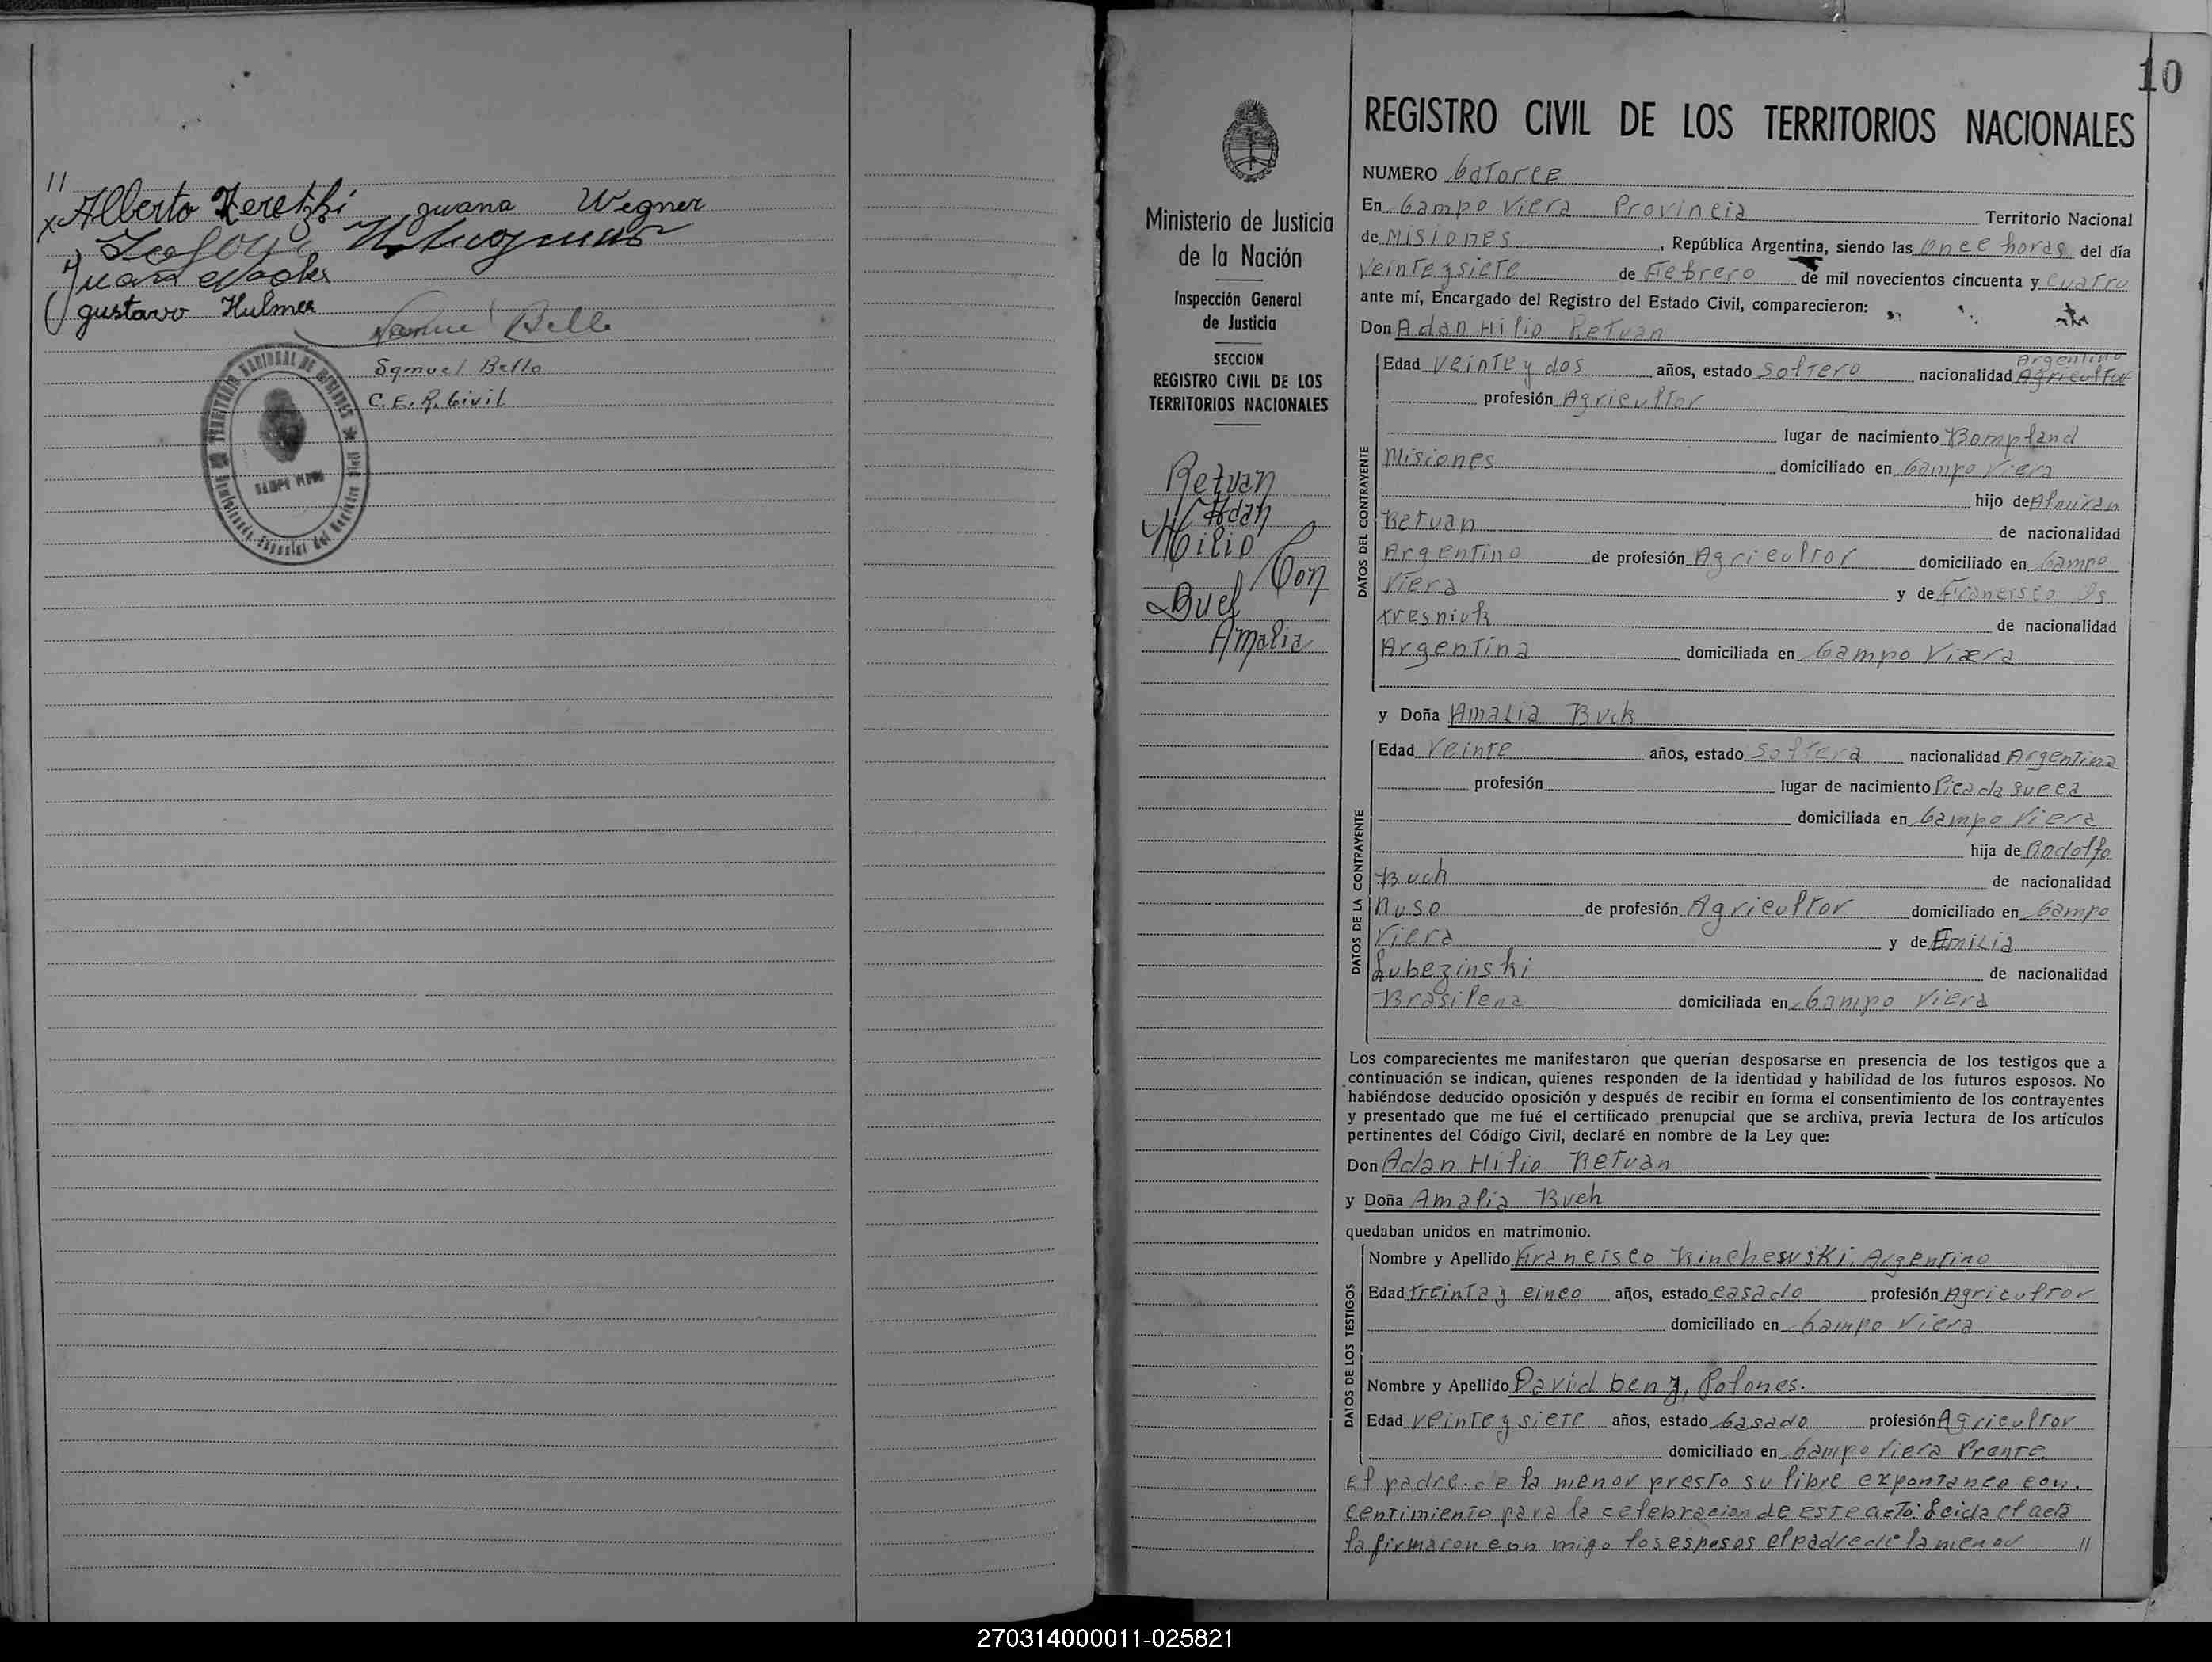 11
x Alberto Zeretzki Juana Wegner
Juan
gustavo Hulmer
Samuel Bello
Samuel Bello
C. E. R. Civil
TERRITORIO NACIONAL DE MISIONES
CAMPO VIERA
10
Ministerio de Justicia
de la Nación
Inspección General
de Justicia
SECCION
REGISTRO CIVIL DE LOS
TERRITORIOS NACIONALES
Retvan
Adan
Hilio
Con
Buck
Amalia
REGISTRO CIVIL DE LOS TERRITORIOS NACIONALES
NUMERO Catorce
En Campo Viera Provincia Territorio Nacional
de Misiones , República Argentina, siendo las once horas del día
veinte y siete de Febrero de mil novecientos cincuenta y cuatro
ante mí, Encargado del Registro del Estado Civil, comparecieron:
Don Adan Hilio Retvan
Argentino
Edad veinte y dos años, estado soltero nacionalidad Agricultor
profesión Agricultor
lugar de nacimiento Bompland
Misiones domiciliado en Campo Viera
hijo de
Retvan de nacionalidad
Argentino de profesión Agricultor domiciliado en Campo
Viera y de Francisco
de nacionalidad
Argentina domiciliada en Campo Viera
DATOS DEL CONTRAYENTE
y Doña Amalia Buck
Edad Veinte años, estado soltera nacionalidad Argentina
profesión lugar de nacimiento Picada sueca
domiciliada en Campo Viera
hija de Rodolfo
Buck de nacionalidad
Ruso de profesión Agricultor domiciliado en Campo
Viera y de Emilia
Lubezinski de nacionalidad
Brasilena domiciliada en Campo Viera
DATOS DE LA CONTRAYENTE
Los comparecientes me manifestaron que querían desposarse en presencia de los testigos que a
continuación se indican, quienes responden de la identidad y habilidad de los futuros esposos. No
habiéndose deducido oposición y después de recibir en forma el consentimiento de los contrayentes
y presentado que me fué el certificado prenupcial que se archiva, previa lectura de los artículos
pertinentes del Código Civil, declaré en nombre de la Ley que:
Don Adan Hilio Retvan
y Doña Amalia Buck
quedaban unidos en matrimonio.
Nombre y Apellido Francisco Kincheswski, Argentino
Edad treinta y cinco años, estado casado profesión Agricultor
domiciliado en Campo Viera
Nombre y Apellido David benz, Polones.
Edad veinte y siete años, estado Casado profesión Agricultor
domiciliado en Campo Viera Prente.
DATOS DE LOS TESTIGOS
el padre de la menor presto su libre expontaneo con.
centimiento para la celebracion de este acto. Leida el acta
la firmaron con migo los esposos el padre de la menor //
270314000011-025821